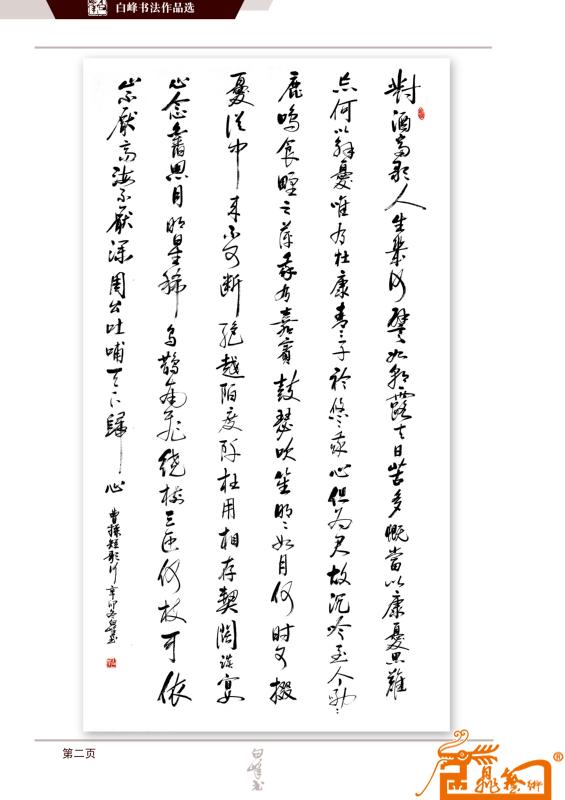 白峰书法作品选
對酒當歌人生幾何譬如朝露去日苦多慨當以慷憂思難
忘何以解憂唯有杜康青〻子衿悠〻我心但为君故沉吟至今呦〻
鹿鳴食野之萍我有嘉賓鼓瑟吹笙明〻如月何时可掇
憂從中来不可断绝越陌度阡枉用相存契闊谈宴
心念舊恩月明星稀烏鵲南飛绕樹三匝何枝可依
山不厭高海不厭深周公吐哺天下歸心
曹操短歌行辛卯冬白峰书
第二页
白峰书
®